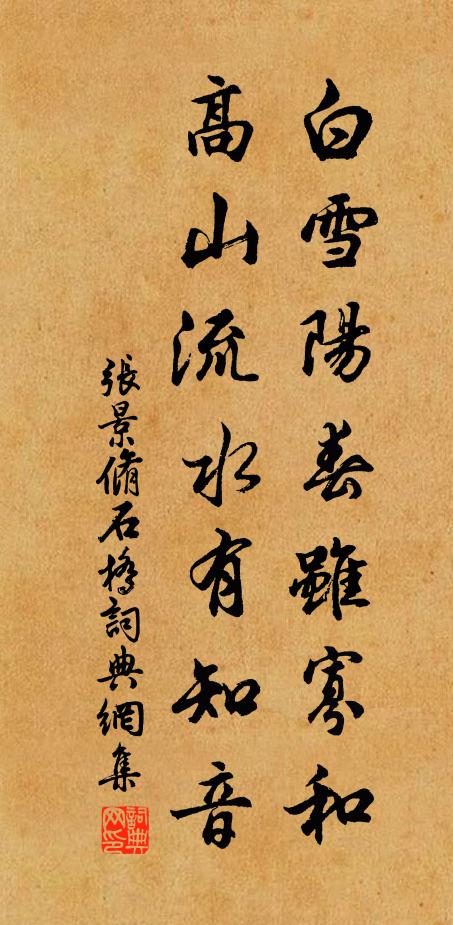 白雪陽春雖寡和
高山流水有知音
張景脩石橋詞典網集
詞典網印